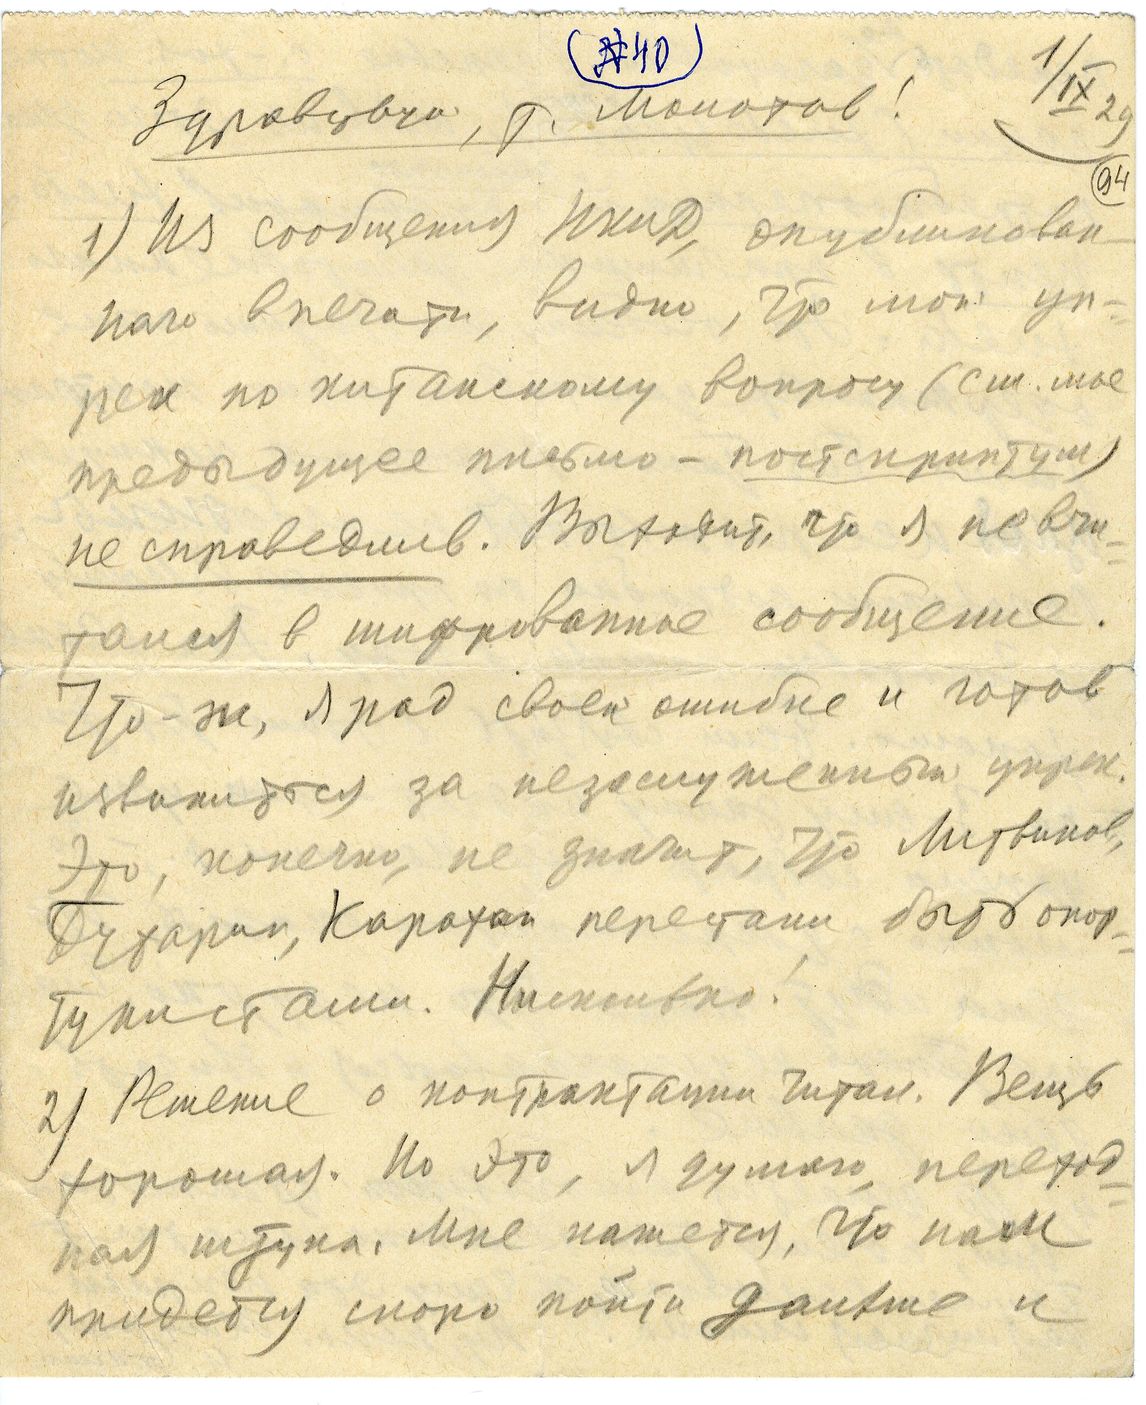 (№40)
1/IX 29
Здравствуй, т. Молотов!
94
1) Из сообщения НКИД, опубликован-
ного в печати, видно, что мой уп-
рек по китайскому вопросу (см. мое
предыдущее письмо – постскриптум)
несправедлив. Выходит, что я не вчи-
тался в шифрованное сообщение.
Что-ж, я рад своей ошибке и готов
извиниться за незаслуженный упрек.
Это, конечно, не значит, что Литвинов,
Бухарин, Карахан перестали быть оппор-
тунистами. Нисколько!
2) Решение о контрактации читал. Вещь
хорошая. Но это, я думаю, переход-
ная штука. Мне кажется, что нам
придется скоро пойти дальше и